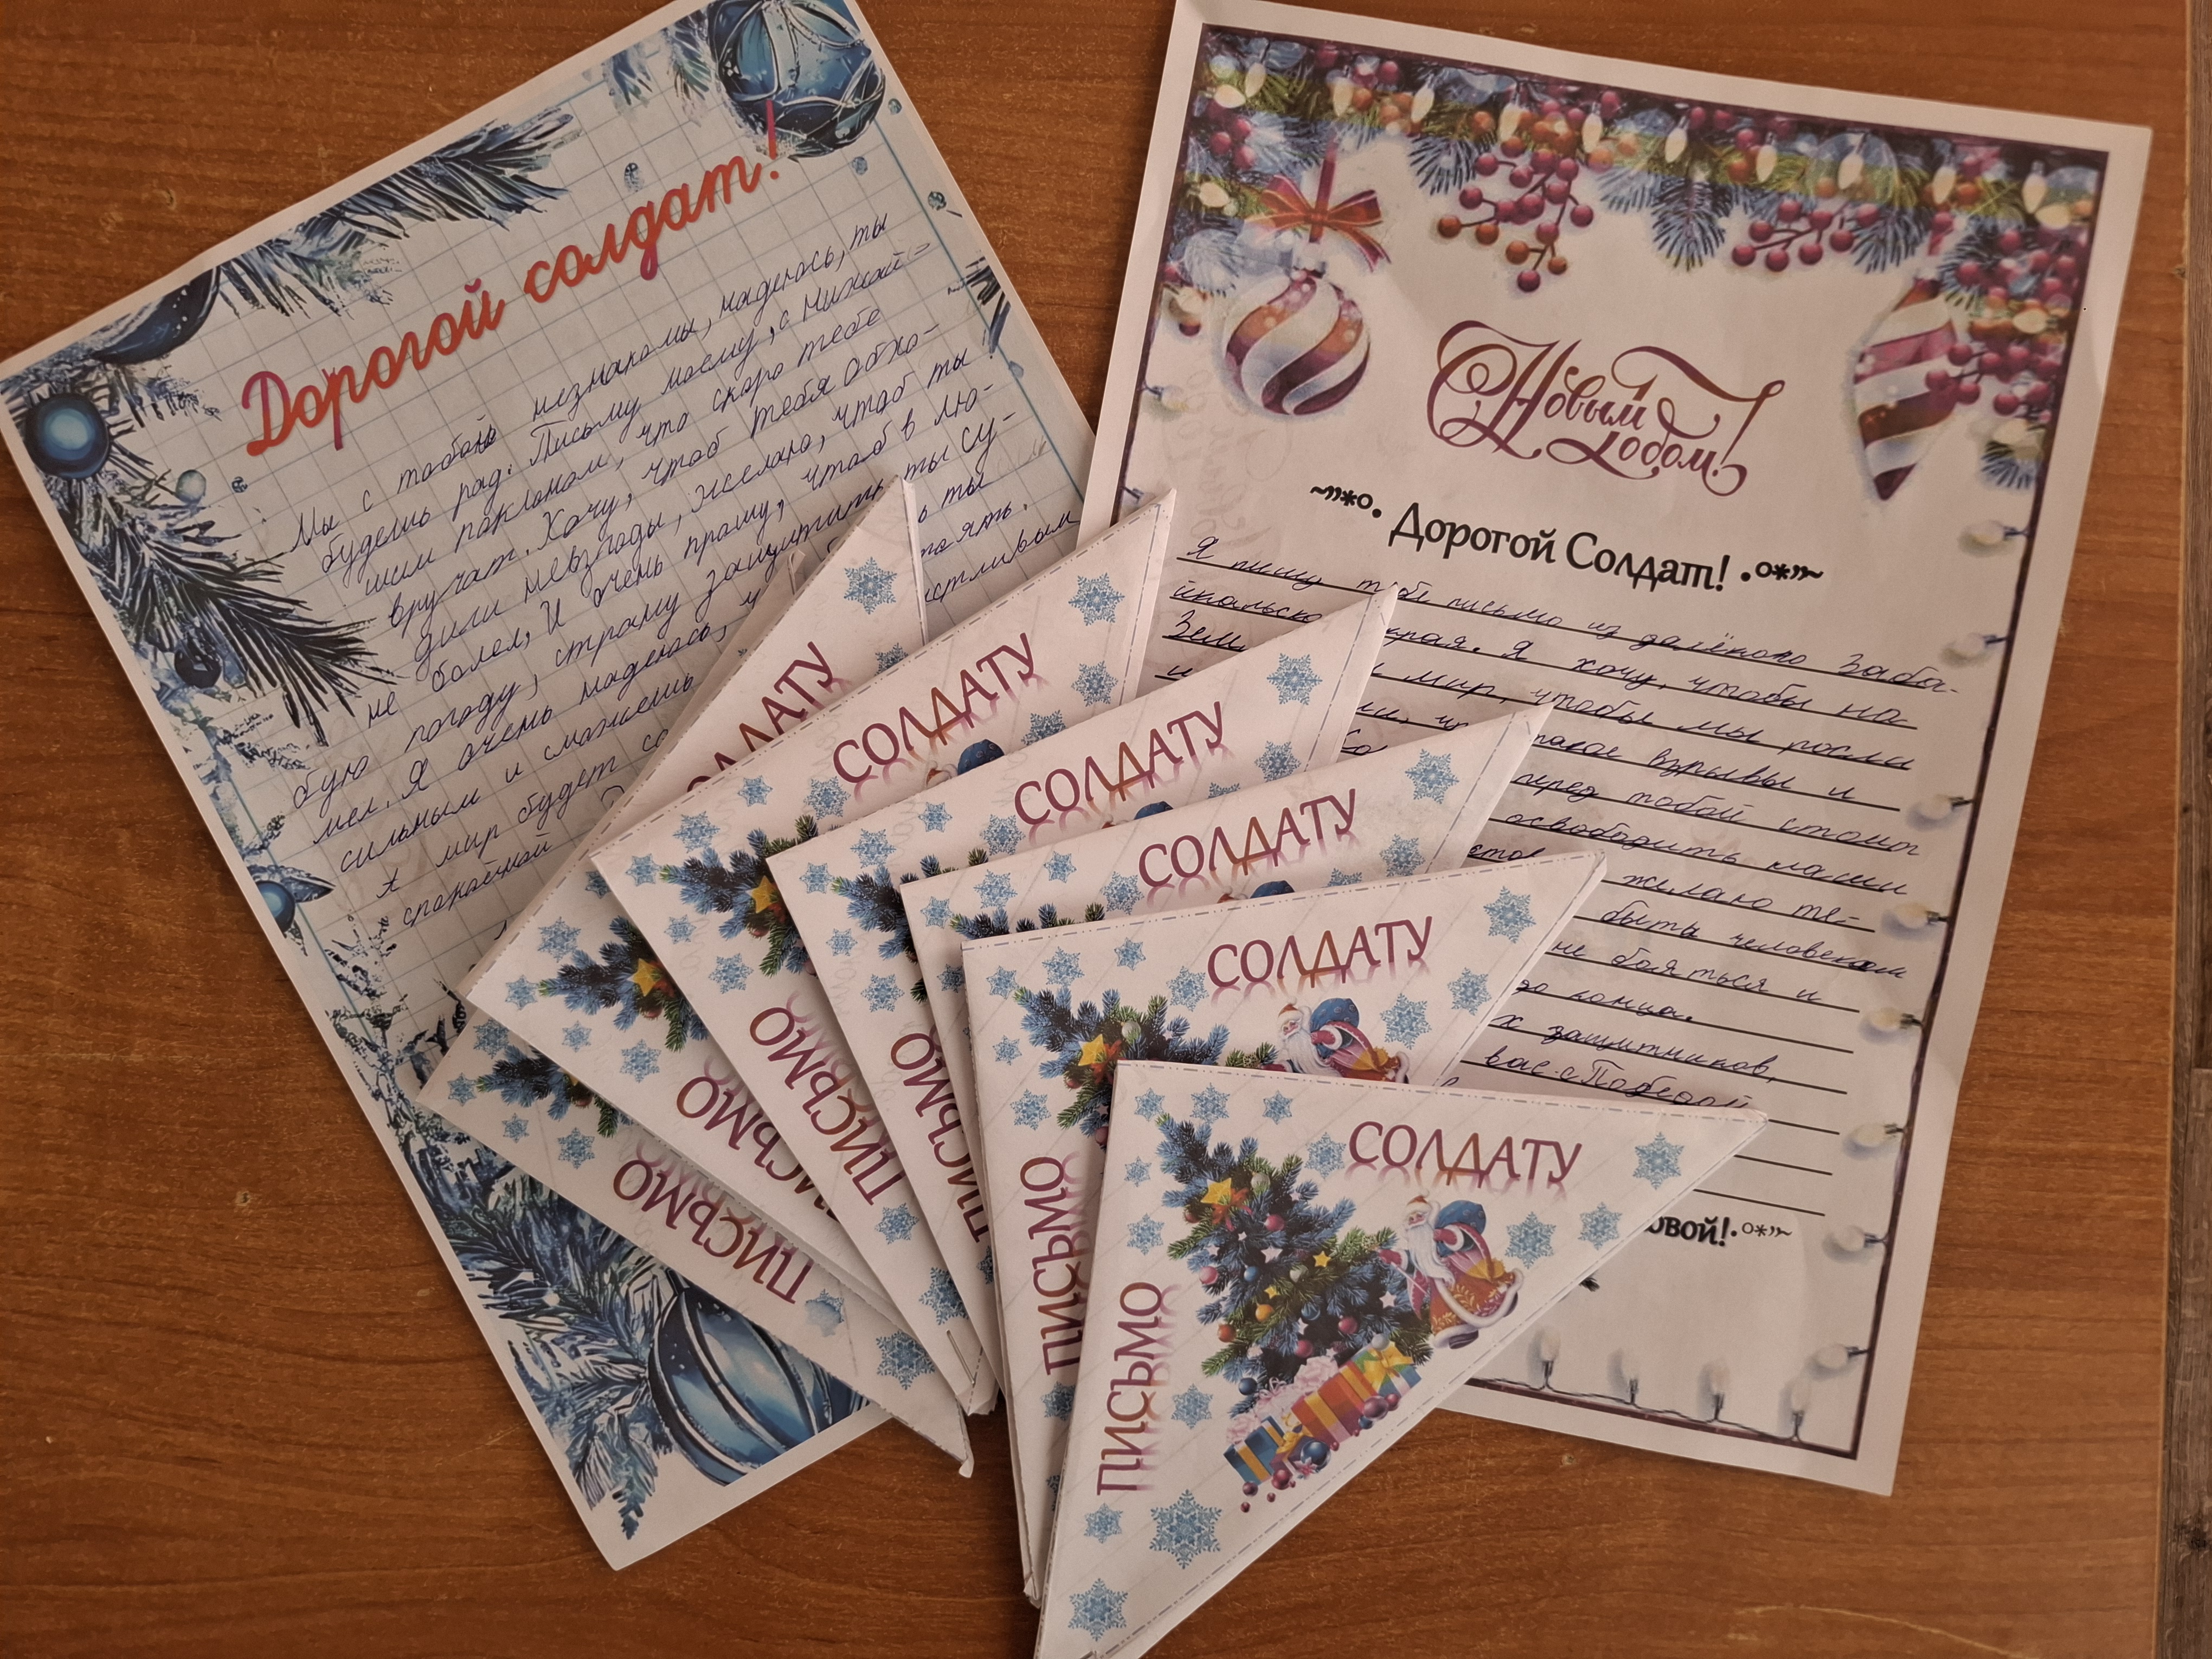 Дорогой солдат!
Мы с тобой незнакомы, надеюсь, ты
будешь рад. Письму моему, с низкой-
шим поклоном, что скоро тебе
вручат. Хочу, чтоб тебя обхо-
дили невзгоды, желаю, чтоб ты
не болел, И очень прошу, чтоб в лю-
бую погоду, страну защитить ты су-
мел. Я очень надеюсь, ты
сильным и сможешь тоять.
А мир будет со стливым
спокойной
С Новым Годом!
~”*°. Дорогой Солдат! .°*”~
Я пишу тебе письмо из далёкого Заба-
йкальско края. Я хочу, чтобы на
Зем мир, чтобы мы росли
и такое взрывы и
перед тобой стоит
освободить наши
желаю те-
быть человеком
не бояться и
до конца.
х защитников,
вас с Победой
овой!.°*”~
СОЛДАТУ
СОЛДАТУ
ПИСЬМО
СОЛДАТУ
ПИСЬМО
СОЛДАТУ
ПИСЬМО
СОЛДАТУ
ПИСЬМО
СОЛДАТУ
ПИСЬМО
ПИСЬМО